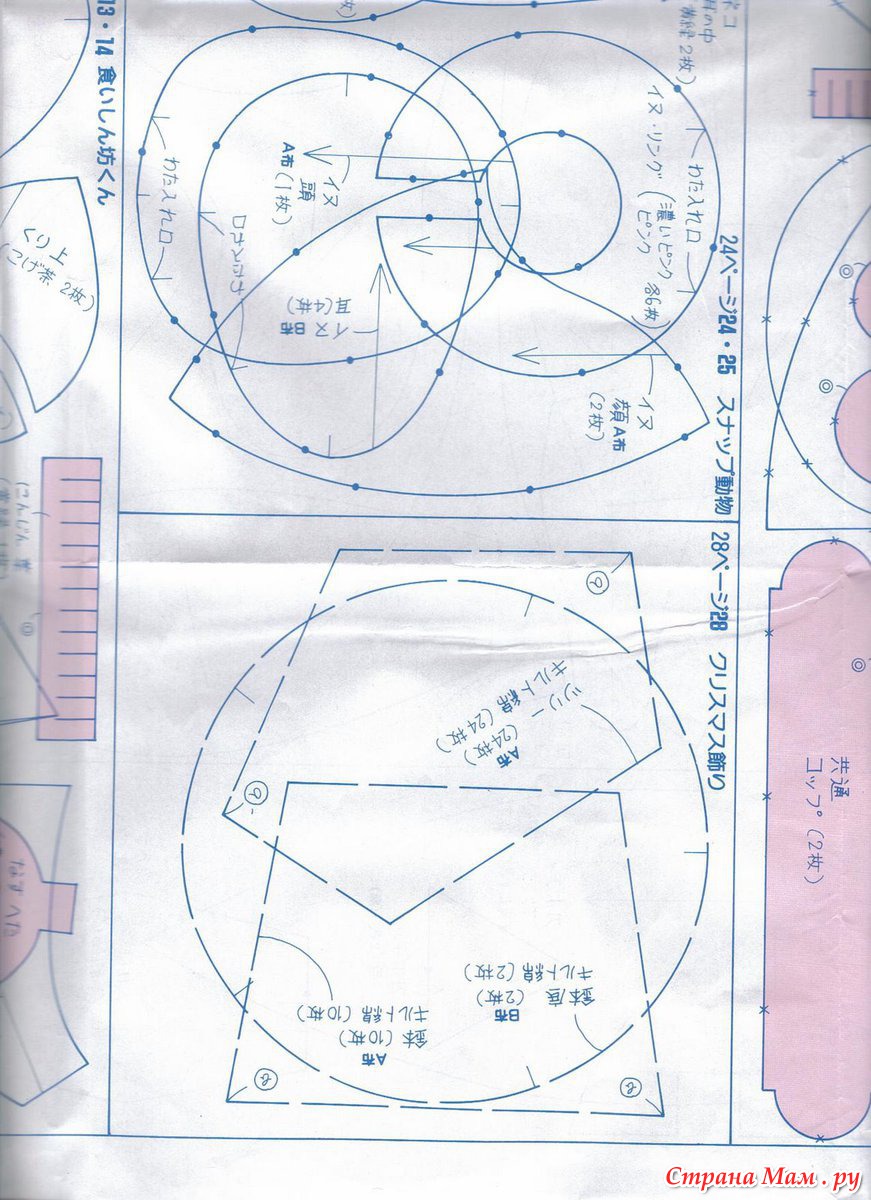 13・14 食いしん坊くん
ネコ
耳の中
(黄緑 2枚)
24ページ24・25 スナップ動物
イヌ・リング
(濃いピンク
ピンク 各6枚)
わた入れ口
わた入れ口
イヌ
頭
A布(1枚)
イヌ B布
耳(4枚)
イヌ
顔 A布
(2枚)
くり 上
(こげ茶 2枚)
28ページ28 クリスマス飾り
ツリー
A布(24枚)
キルト綿(24枚)
鉢底
B布(2枚)
キルト綿(2枚)
A布
鉢(10枚)
キルト綿(10枚)
a
a
b
b
共通
コップ(2枚)
にんじん 葉
なす へた
Страна Мам.ру